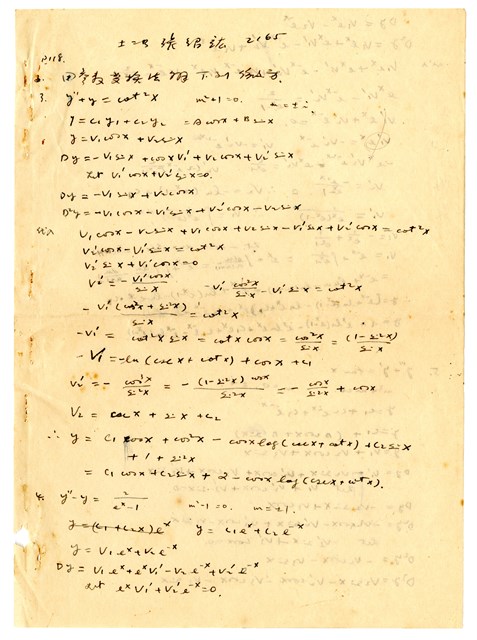 土二B 張紹鋐 2165
P.118.
2. 用參數變換法解下列微分方
3. y"+y = cot²x m²+1=0. m=±i
y = c₁y₁+c₂y₂ = A cosx + B sinx
y = V₁cosx + V₂sinx
Dy = -V₁sinx + cosxV₁' + V₂cosx + V₂'sinx
Let V₁'cosx + V₂'sinx = 0.
Dy = -V₁sinx + V₂cosx
D²y = -V₁cosx - V₁'sinx + V₂'cosx - V₂sinx
V₁cosx - V₂sinx + V₁cosx + V₂sinx - V₁'sinx + V₂'cosx = cot²x
V₂'cosx - V₁'sinx = cot²x
V₂'sinx + V₁'cosx = 0
V₂' = - V₁'cosx/sinx -V₁' cos²x/sinx - V₁'sinx = cot²x
- V₁' (cos²x + sin²x)/sinx = cot²x
-V₁' = cot²x sinx = cotx cosx = cos²x/sinx = (1-sin²x)/sinx
- V₁ = -ln (cscx + cotx) + cosx + c₁
V₂' = - cos³x/sin²x = - (1-sin²x) cosx/sin²x = - cosx/sin²x + cosx
V₂ = cscx + sinx + c₂
∴ y = c₁ cosx + cos²x - cosx log(cscx+cotx) + c₂sinx
+ 1 + sin²x
= c₁ cosx + c₂sinx + 2 - cosx log(cscx+cotx).
4. y"-y = 2/(eˣ-1) m²-1=0. m=±1.
y=(c₁+c₂x)eˣ y = c₁eˣ+c₂e⁻ˣ
y = V₁eˣ+V₂e⁻ˣ
Dy = V₁eˣ+eˣV₁'-V₂e⁻ˣ+V₂'e⁻ˣ
Let eˣV₁'+V₂'e⁻ˣ=0.